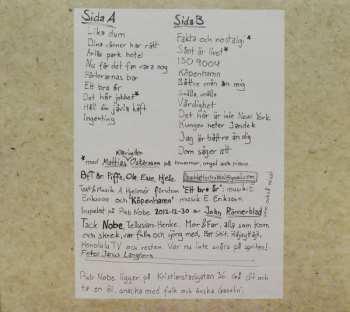 Sida A
Lika dum
Dina vänner har rätt
Arilds park hotell
Nu får det fan vara nog
Föderarnas bar
Ett bra år
Det här jobbet*
Håll din jävla käft
Ingenting
Sida B
Fakta och nostalgi*
Sånt är livet*
ISO 9004
Köpenhamn
Bättre män än mig
Snälla snälla
Värdighet
Det här är inte New York
Kungen heter Jandek
Jag är bättre än dig
Som såser sitt
*med Mattias på trummor, orgel och piano
BÅT är Piffe, Ole, Ewe, Helle.
Text & Musik A Hjelmér förutom "Ett bra år": musik E
Eriksson och "Köpenhamn" musik E Eriksson.
Inspelat på Pub Nobe 2012-12-30 av John Rönnerblad
Tack Nobe, Mor & Far, alla som kom
och skrek, var fulla och sjöng med,
Honolulu TV och resten. Var nu inte snåla på spriten!
Foto: Jenus Långhorn
Pub Nobe ligger på Kristianstadsgatan 26. Gå dit och
ta en öl, snacka med folk och önska